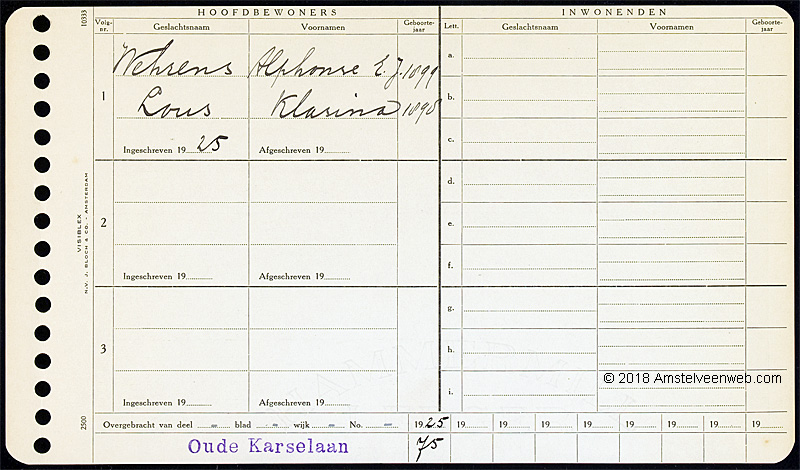 HOOFDBEWONERS INWONENDEN
10333
Volg-nr. Geslachtsnaam Voornamen Geboorte-jaar Lett. Geslachtsnaam Voornamen Geboorte-jaar
1 Wehrens Alphonse E. J. 1899 a.
Lous Klasina 1898 b.
Ingeschreven 19 25 Afgeschreven 19 c.
2 d.
e.
Ingeschreven 19 Afgeschreven 19 f.
3 g.
h.
Ingeschreven 19 Afgeschreven 19 i.
VISIBLEX
N.V. J. BLOCH & CO. - AMSTERDAM
2500
© 2018 Amstelveenweb.com
Overgebracht van deel - blad - wijk - No. - 1925 19 19 19 19 19 19 19 19
Oude Karselaan 75